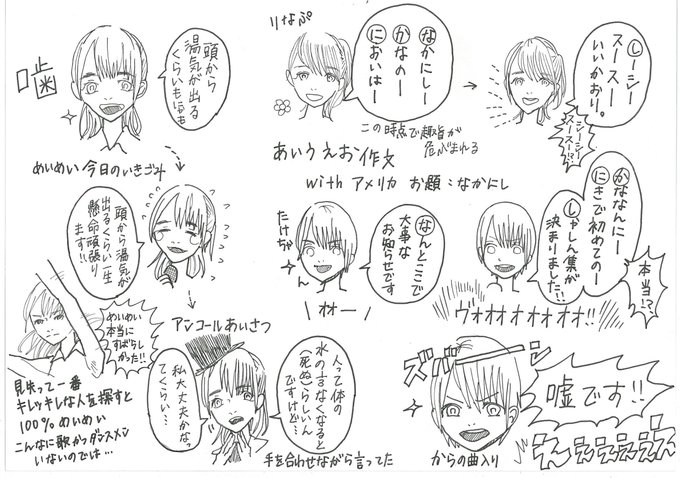 噛
頭から
湯気が出る
くらい
めいめい 今日のいきごみ
頭から湯気が
出るくらい一生
懸命頑張り
ます!!
めいめい
本当に
すばらし
かった!!
見失って一番
キレッキレな人を探すと
100%めいめい
こんなに歌かつダンスメン
いないのでは…
アンコールあいさつ
人って体の
水の なくなると
(死ぬ)らしいん
ですけど…
私大丈夫かなっ
てくらい…
手を合わせながら言ってた
りなぷ
なかにしー
かなのー
においはー
しーシー
スースー
いいかおり。
シーシー
スースー!?
この時点で趣旨が
危ぶまれる
あいうえお作文
with アメリカ お題:なかにし
たけちゃん
なんとここで
大事な
お知らせです
オオー
かななんにー
にきで初めてのー
しゃしん集が
決まりました!!
本当!?
ヴォオオオオオオ!!
ズバーーン
嘘です!!
えぇぇぇぇぇん
からの曲入り